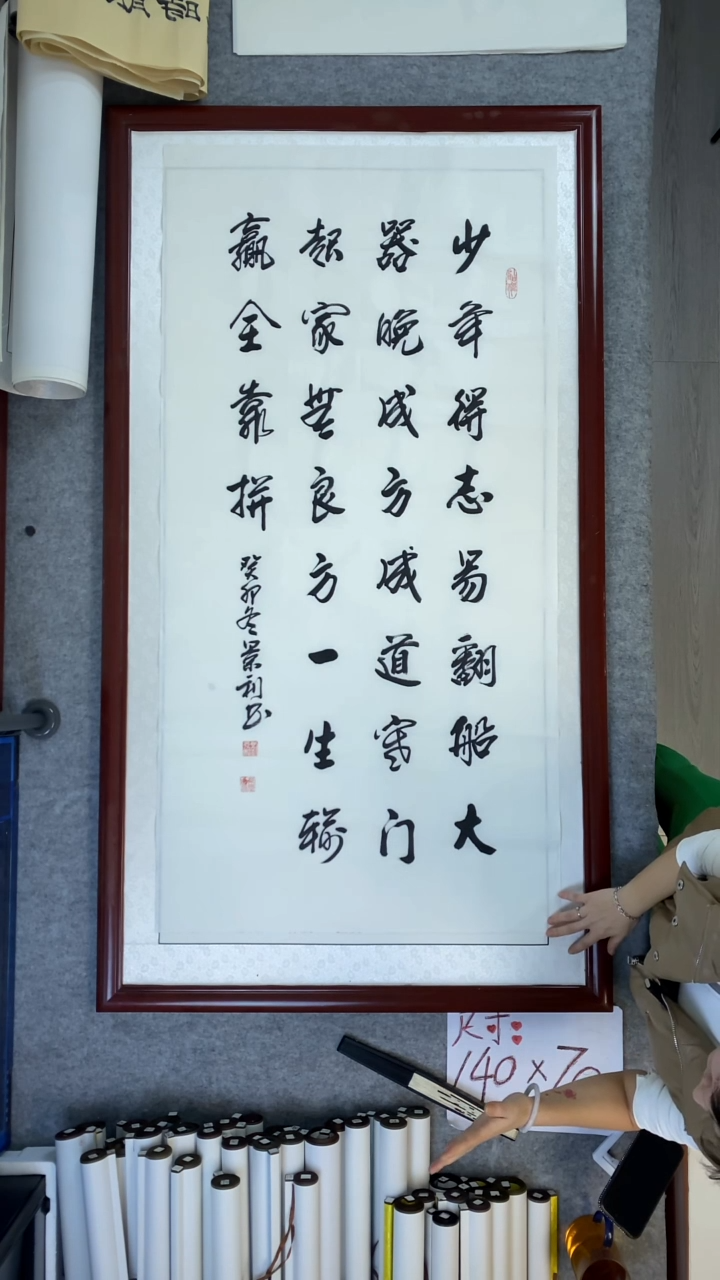 少年得志易翻船大
器晚成方成道寒门
起家無良方一生輸
贏全靠拼
癸卯冬景利书
尺寸:
140×70